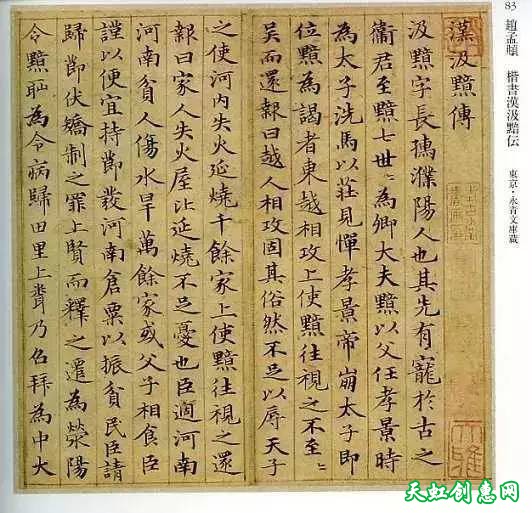 83 趙孟頫 楷書漢汲黯伝 東京・永青文庫蔵
漢汲黯傳
汲黯字長孺濮陽人也其先有寵於古之
衛君至黯七世〻為卿大夫黯以父任孝景時
為太子洗馬以莊見憚孝景帝崩太子即
位黯為謁者東越相攻上使黯往視之不至〻
吳而還報曰越人相攻固其俗然不足以辱天子
之使河内失火延燒千餘家上使黯往視之還
報曰家人失火屋比延燒不足憂也臣適河南
河南貧人傷水旱萬餘家或父子相食臣
謹以便宜持節發河南倉粟以振貧民臣請
歸節伏矯制之罪上賢而釋之遷為滎陽
令黯恥為令病歸田里上聞乃召拜為中大
天虹创意网